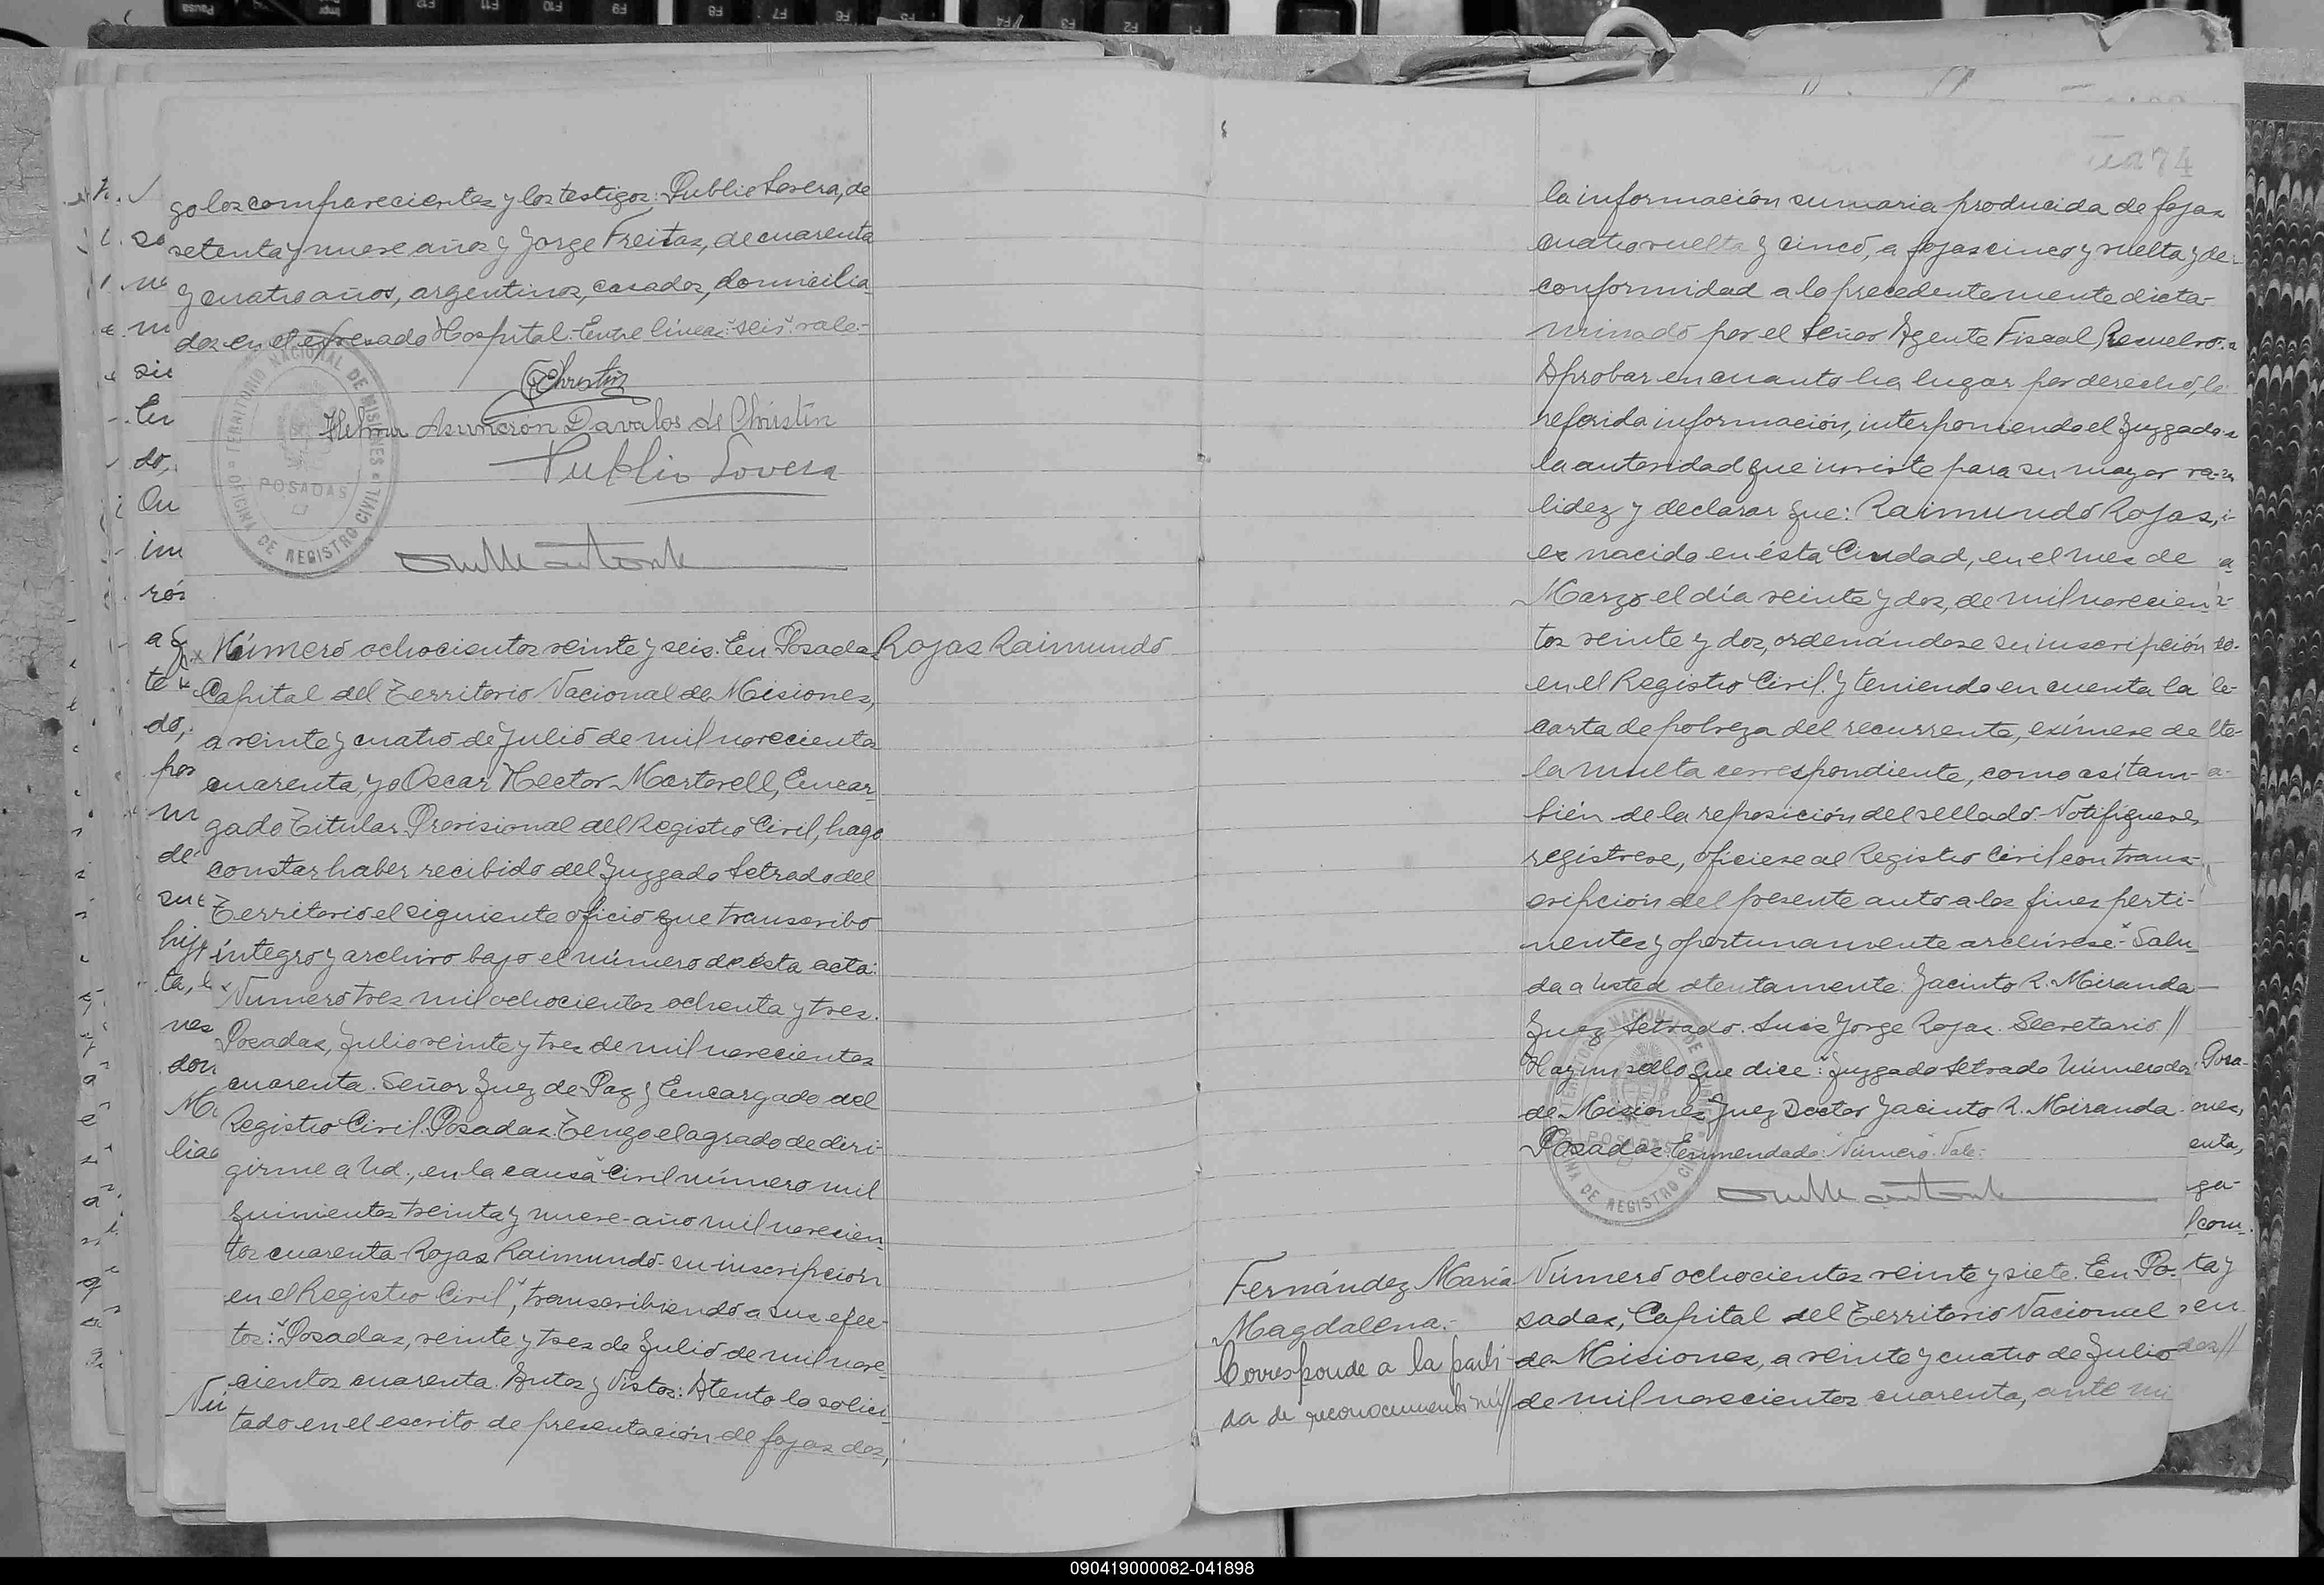 go los comparecientes y los testigos: Publio Lovera, de
setenta y nueve años y Jorge Freitas, de cuarenta
y cuatro años, argentinos, casados, domicilia-
dos en el expresado Hospital. Entre líneas: "seis": vale.-
Asunción Dávalos de Christin
Publio Lovera
OFICINA DE REGISTRO CIVIL
TERRITORIO NACIONAL DE MISIONES
POSADAS
Rojas Raimundo
Número ochocientos veinte y seis. En Posadas
Capital del Territorio Nacional de Misiones,
a veinte y cuatro de Julio de mil novecientos
cuarenta, yo Oscar Hector Martorell, Encar-
gado Titular Provisional del Registro Civil, hago
constar haber recibido del Juzgado Letrado del
Territorio el siguiente oficio que transcribo
íntegro y archivo bajo el número de ésta acta:
"Número tres mil ochocientos ochenta y tres.
Posadas, Julio veinte y tres de mil novecientos
cuarenta. Señor Juez de Paz y Encargado del
Registro Civil. Posadas. Tengo el agrado de diri-
girme a Ud., en la causa "Civil número mil
quinientos treinta y nueve - año mil novecien-
tos cuarenta - Rojas Raimundo - su inscripción
en el Registro Civil", transcribiendo a sus efec-
tos: "Posadas, veinte y tres de Julio de mil nove-
cientos cuarenta. Autos y Vistos: Atento lo solici-
tado en el escrito de presentación de fojas dos,
74
la información sumaria producida de fojas
cuatro vuelta y cinco, a fojas cinco y vuelta y de
conformidad a lo precedentemente dicta-
minado por el Señor Agente Fiscal, Resuelvo:
Aprobar en cuanto ha lugar por derecho, la
referida información, interponiendo el Juzgado
la autoridad que inviste para su mayor va-
lidez y declarar que: Raimundo Rojas,
es nacido en ésta Ciudad, en el mes de
Marzo el día veinte y dos, de mil novecien-
tos veinte y dos, ordenándose su inscripción
en el Registro Civil. Y teniendo en cuenta la
carta de pobreza del recurrente, exímese de
la multa correspondiente, como así tam-
bién de la reposición del sellado. Notifíquese,
regístrese, oficiese al Registro Civil con trans-
cripción del presente auto a los fines perti-
nentes y oportunamente archívese".- Salu-
da a Usted atentamente. Jacinto R. Miranda-
Juez Letrado. Luis Jorge Rojas. Secretario //
Hay un sello que dice: "Juzgado Letrado Número dos
de Misiones Juez Doctor Jacinto R. Miranda.
Posadas. Enmendado: Número. Vale.
Fernández María
Magdalena.-
Corresponde a la parti-
da de reconocimiento
Número ochocientos veinte y siete. En Po-
sadas, Capital del Territorio Nacional
de Misiones, a veinte y cuatro de Julio
de mil novecientos cuarenta, ante mi
090419000082-041898